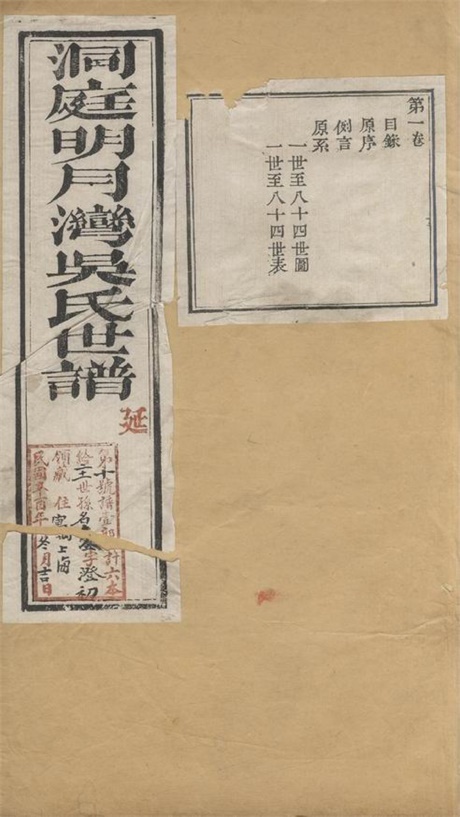 洞庭明月灣吳氏世譜
延
第十號譜壹部計六本
給 世孫名 字澄初
領藏 住寓上海
民國辛酉年 冬月吉日
第一卷
目錄
原序
例言
原系
一世至八十四世圖
一世至八十四世表